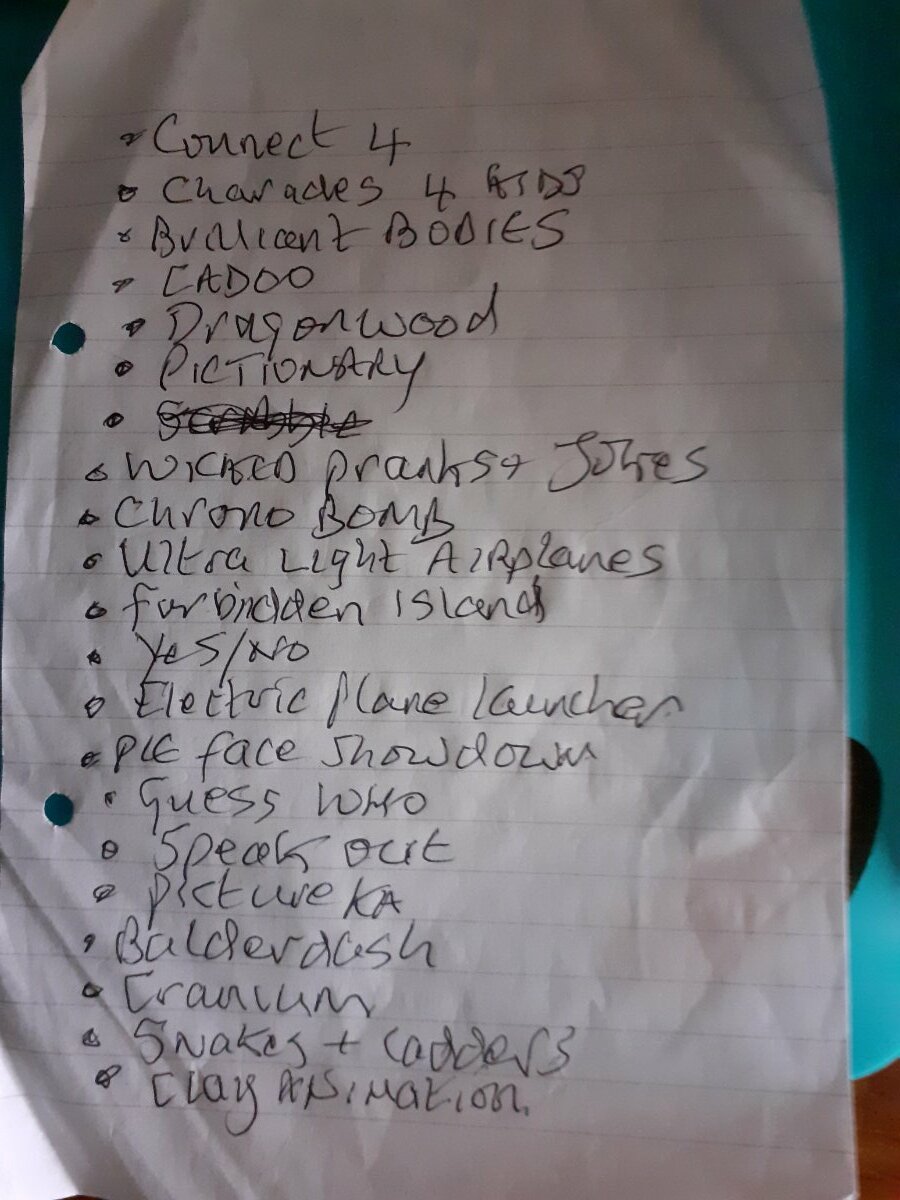 Connect 4
Charades 4 KIDS
Brilliant BODIES
CADOO
Dragonwood
PICTIONARY
WICKED pranks + Jokes
Chrono BOMB
Ultra Light AIRplanes
forbidden Island
Yes/No
Electric Plane launcher
PIE face Showdown
Guess WHO
Speak out
Picture KA
Balderdash
Cranium
Snakes + Ladders
Clay ANiMATION.